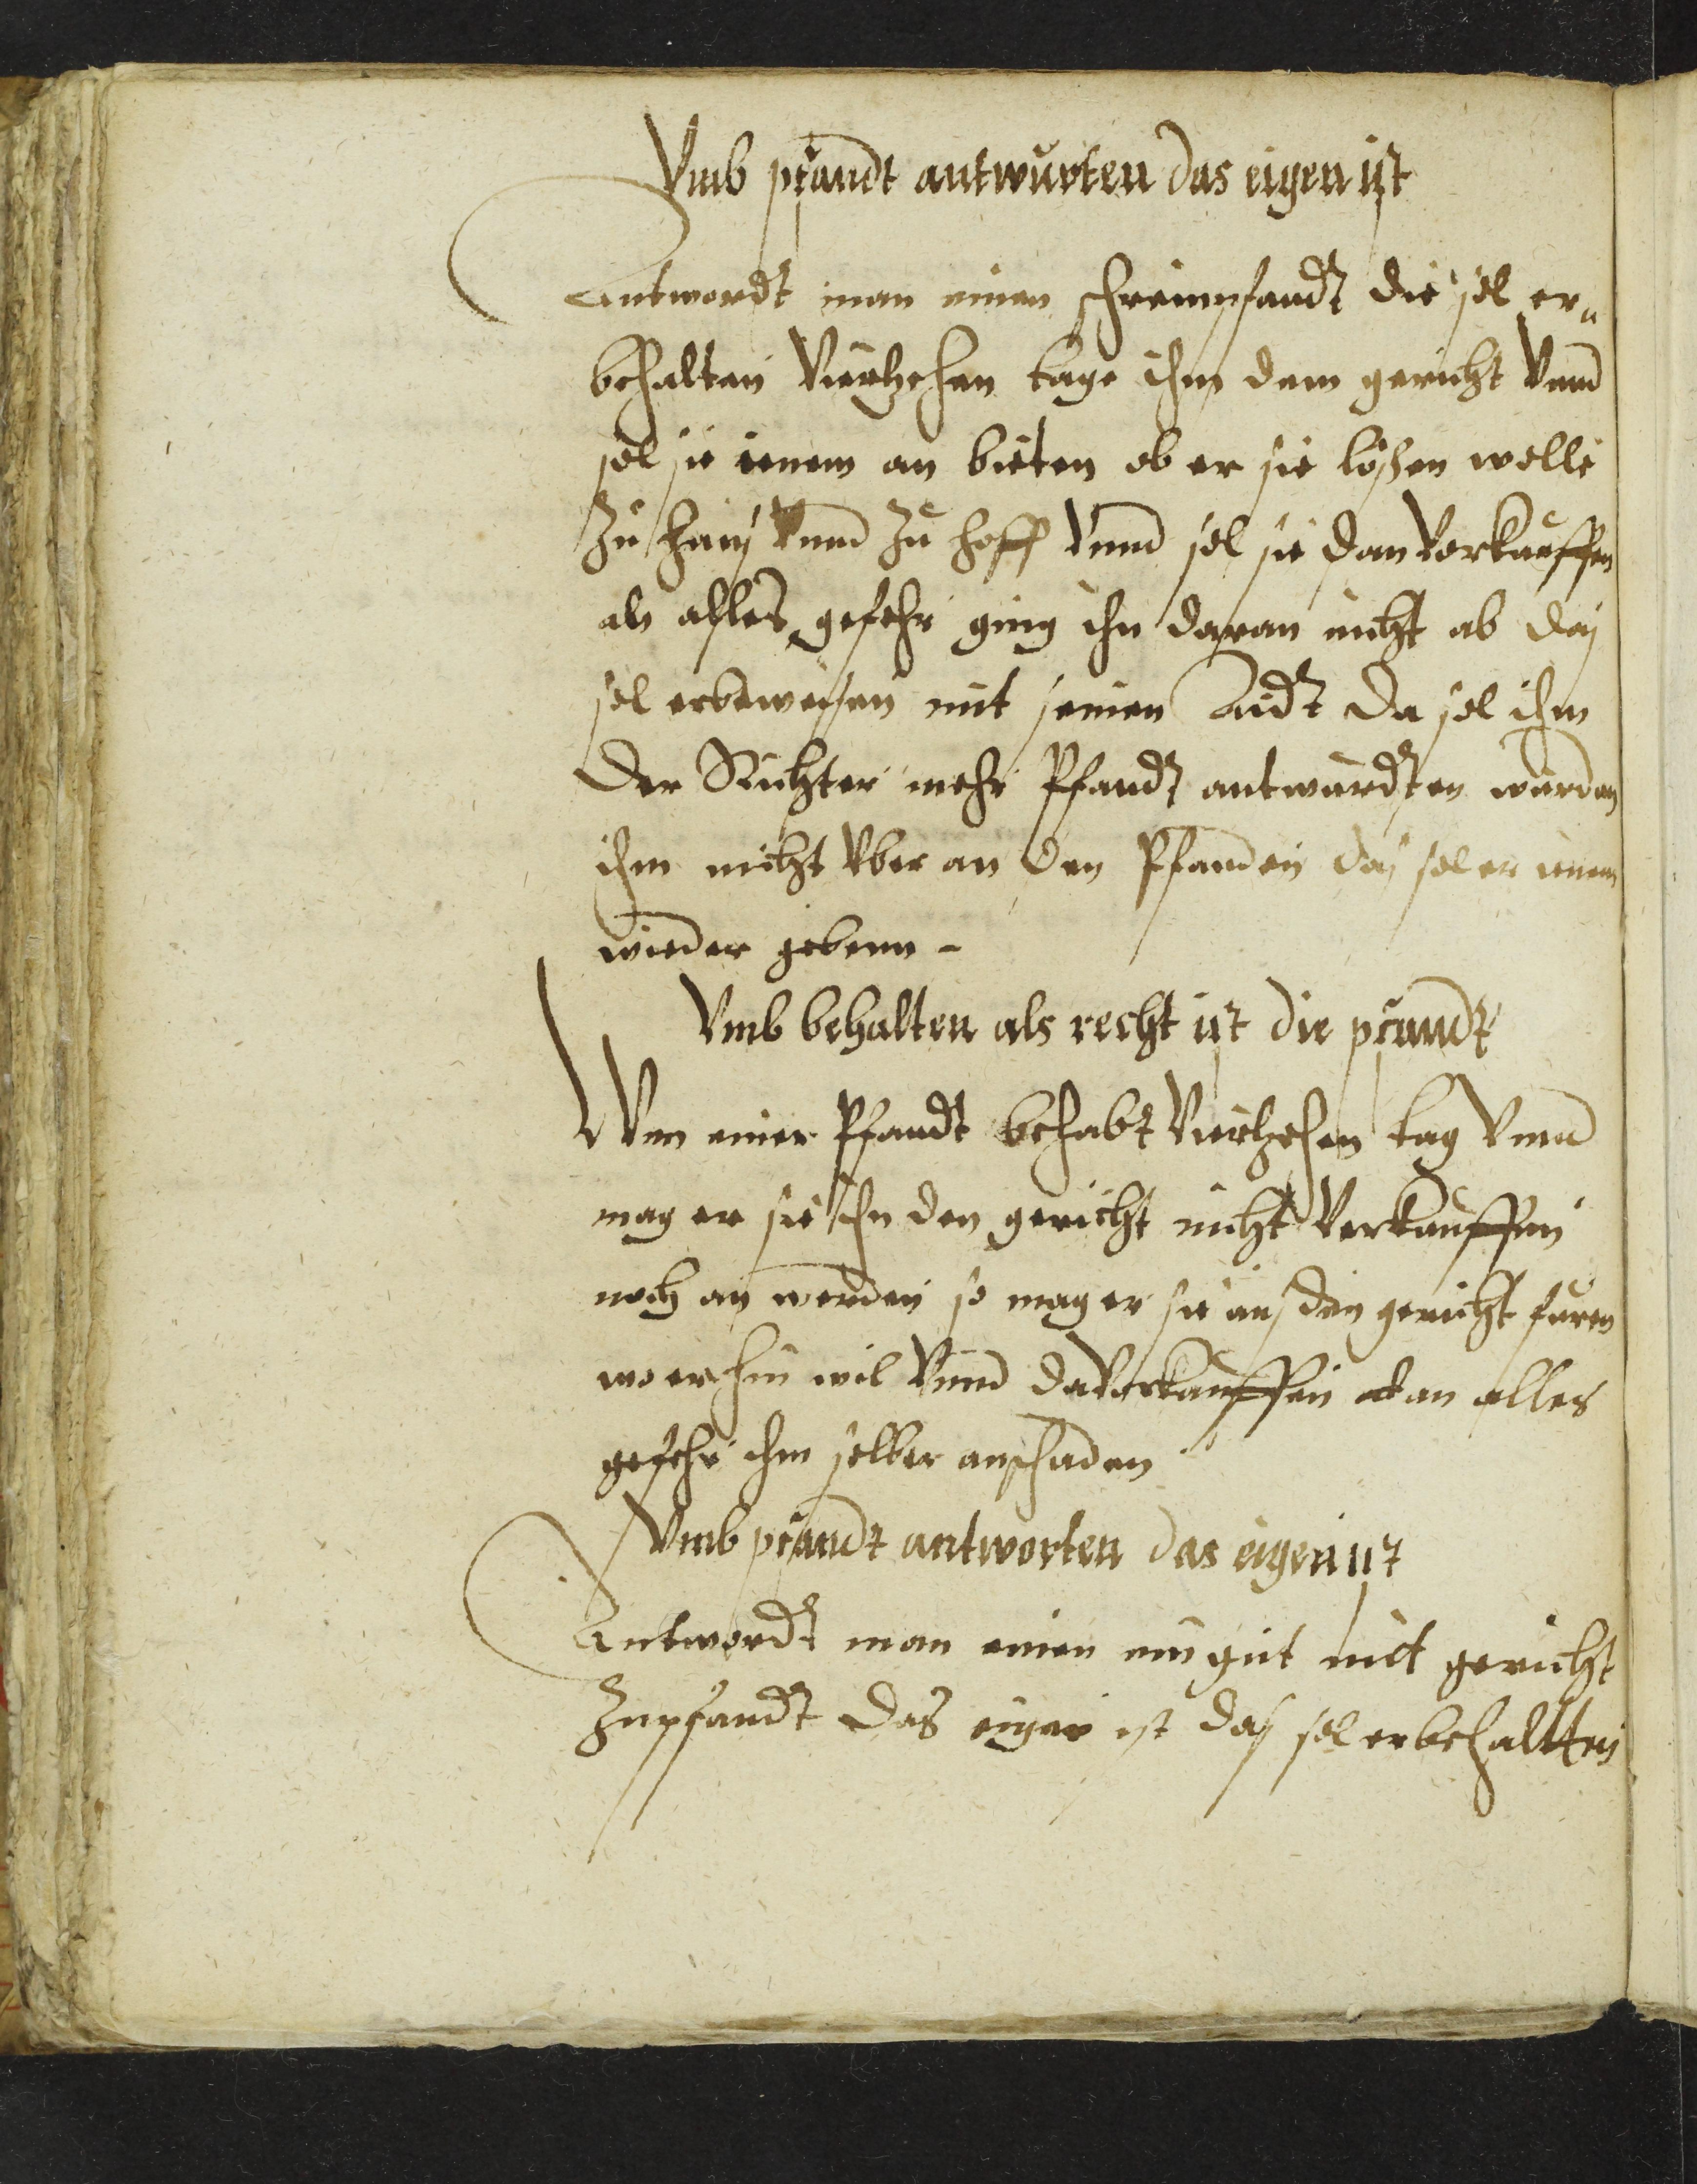 Vmb pfandt antwurten das eigen ist
Antwordt man einen schreinpfandt die sol er„
behalten Vierzehen tage ihm dem gericht Vnnd
sol sie ienem an bieten ob er sie lösen wölle
Zu hauß Vnnd Zu hoff Vnnd sol sie dan Verkauffen
ab alles gefehr ging ihn daran nicht ab daß
sol er beweisen mit seinen Aidt da sol ihm
der Richter mehr Pfandt antwurdten wurden
ihm nicht Vber an den Pfanden daß sol er ienem
wieder gebenn -
Vmb behalten als recht ist die pfandt
Wen einer Pfandt behabt Vierzehen tag Vnnd
mag er sie ihn den gericht nicht Verkauffen
noch an werden so mag er sie auß den gericht furen
wo er hin wil Vnnd da Verkauffen an alles
gefehr ihm selber anschaden
Vmb pfandt antworten das eigen ist
Antwordt man einen ein gut mit gericht
Zu pfandt das eigen ist daß sol er behaltten